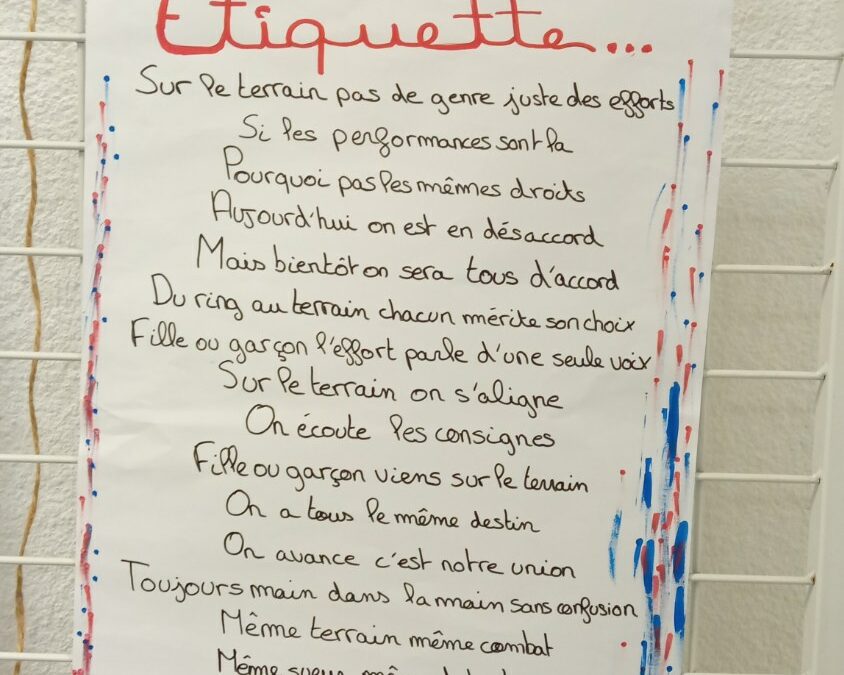 Etiquette...
Sur le terrain pas de genre juste des efforts
Si les performances sont la
Pourquoi pas les mêmes droits
Aujourd'hui on est en désaccord
Mais bientôt on sera tous d'accord
Du ring au terrain chacun mérite son choix
Fille ou garçon l'effort parle d'une seule voix
Sur le terrain on s'aligne
On écoute les consignes
Fille ou garçon viens sur le terrain
On a tous le même destin
On avance c'est notre union
Toujours main dans la main sans confusion
Même terrain même combat
Même